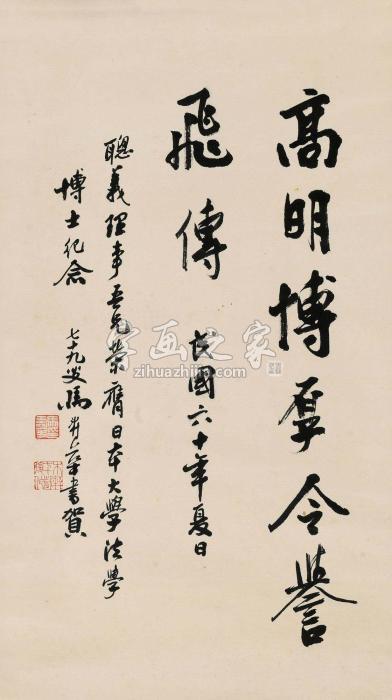 高明博厚令譽
飛傳 民國六十年夏日
聰義理事吾兄榮膺日本大學法學
博士紀念 七十九叟馮 書賀
字画之家
zihuazhijia.com